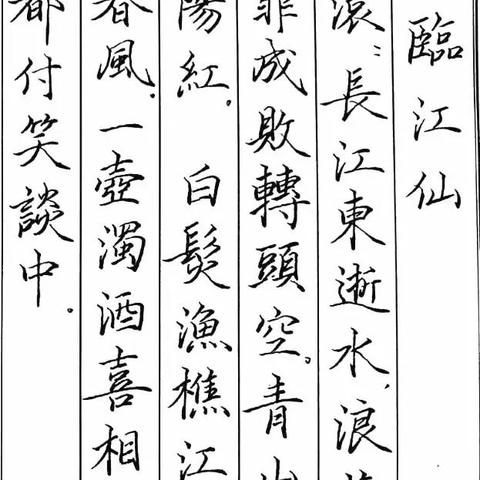 臨江仙
滾〻長江東逝水，浪
非成敗轉頭空。青
陽紅。 白髮漁樵江
春風。一壺濁酒喜相
都付笑談中。